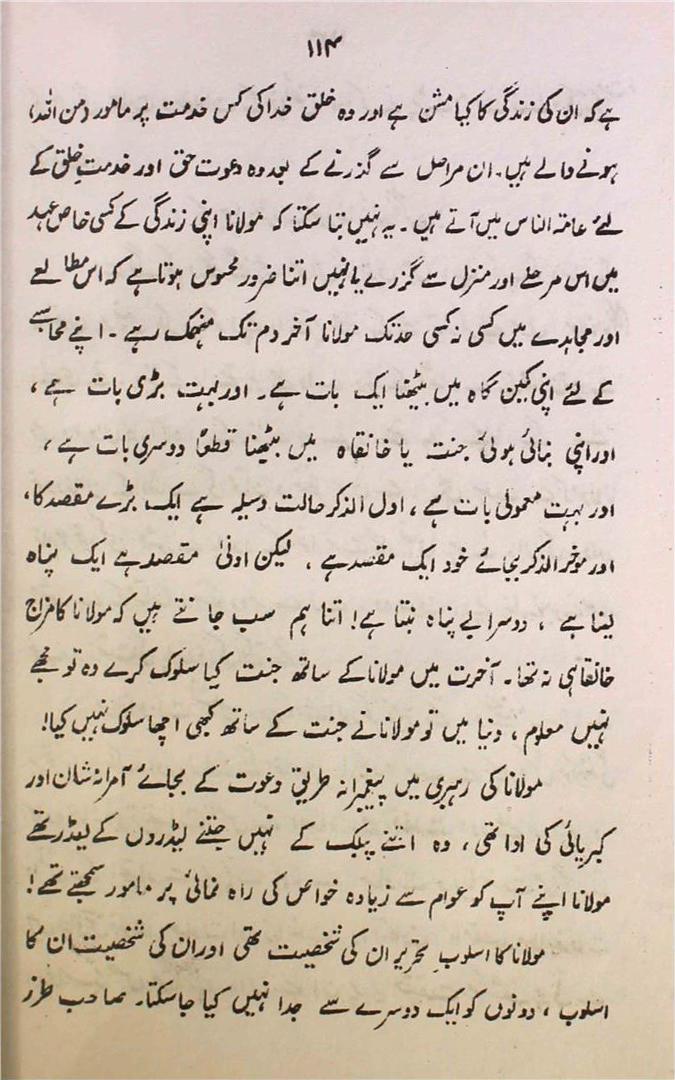 ۱۱۴
ہے کہ ان کی زندگی کا کیا مشن ہے اور وہ خلق خدا کی کس خدمت پر مامور (من اللہ)
ہونے والے ہیں۔ ان مراحل سے گزرنے کے بعد وہ دعوت حق اور خدمتِ خلق کے
لئے عامتہ الناس میں آتے ہیں۔ یہ نہیں بتا سکتا کہ مولانا اپنی زندگی کے کسی خاص عہد
میں اس مرحلے اور منزل سے گزرے یا نہیں اتنا ضرور محسوس ہوتا ہے کہ اس مطالعے
اور مجاہدے میں کسی نہ کسی حد تک مولانا آخر دم تک منہمک رہے۔ اپنے محاسبے
کے لئے اپنی کمین گاہ میں بیٹھنا ایک بات ہے۔ اور بہت بڑی بات ہے،
اور اپنی بنائی ہوئی جنت یا خانقاہ میں بیٹھنا قطعاً دوسری بات ہے،
اور بہت معمولی بات ہے، اول الذکر حالت وسیلہ ہے ایک بڑے مقصد کا،
اور موخر الذکر بجائے خود ایک مقصد ہے، لیکن ادنیٰ مقصد ہے ایک پناہ
لیتا ہے، دوسرا بے پناہ بنتا ہے! اتنا ہم سب جانتے ہیں کہ مولانا کا مزاج
خانقاہی نہ تھا۔ آخرت میں مولانا کے ساتھ جنت کیا سلوک کرے وہ تو مجھے
نہیں معلوم، دنیا میں تو مولانا نے جنت کے ساتھ کبھی اچھا سلوک نہیں کیا!
مولانا کی رہبری میں پیغمبرانہ طریق دعوت کے بجائے آمرانہ شان اور
کبریائی کی ادا تھی، وہ اتنے پبلک کے نہیں جتنے لیڈروں کے لیڈر تھے
مولانا اپنے آپ کو عوام سے زیادہ خواص کی راہ نمائی پر مامور سمجھتے تھے!
مولانا کا اسلوبِ تحریر ان کی شخصیت تھی اور ان کی شخصیت ان کا
اسلوب، دونوں کو ایک دوسرے سے جدا نہیں کیا جا سکتا۔ صاحب طرز